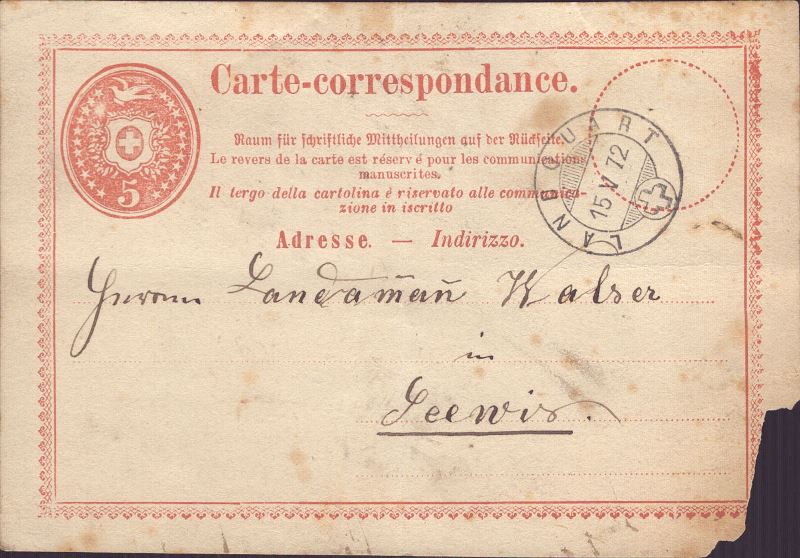 Carte-correspondance.
5
Raum für schriftliche Mittheilungen auf der Rückseite.
Le revers de la carte est réservé pour les communications
manuscrites.
Il tergo della cartolina è riservato alle communica-
zione in iscritto
Adresse. — Indirizzo.
LANDQUART
15 V 72
Herrn Landam̄an̄ Walser
in
Seewis.